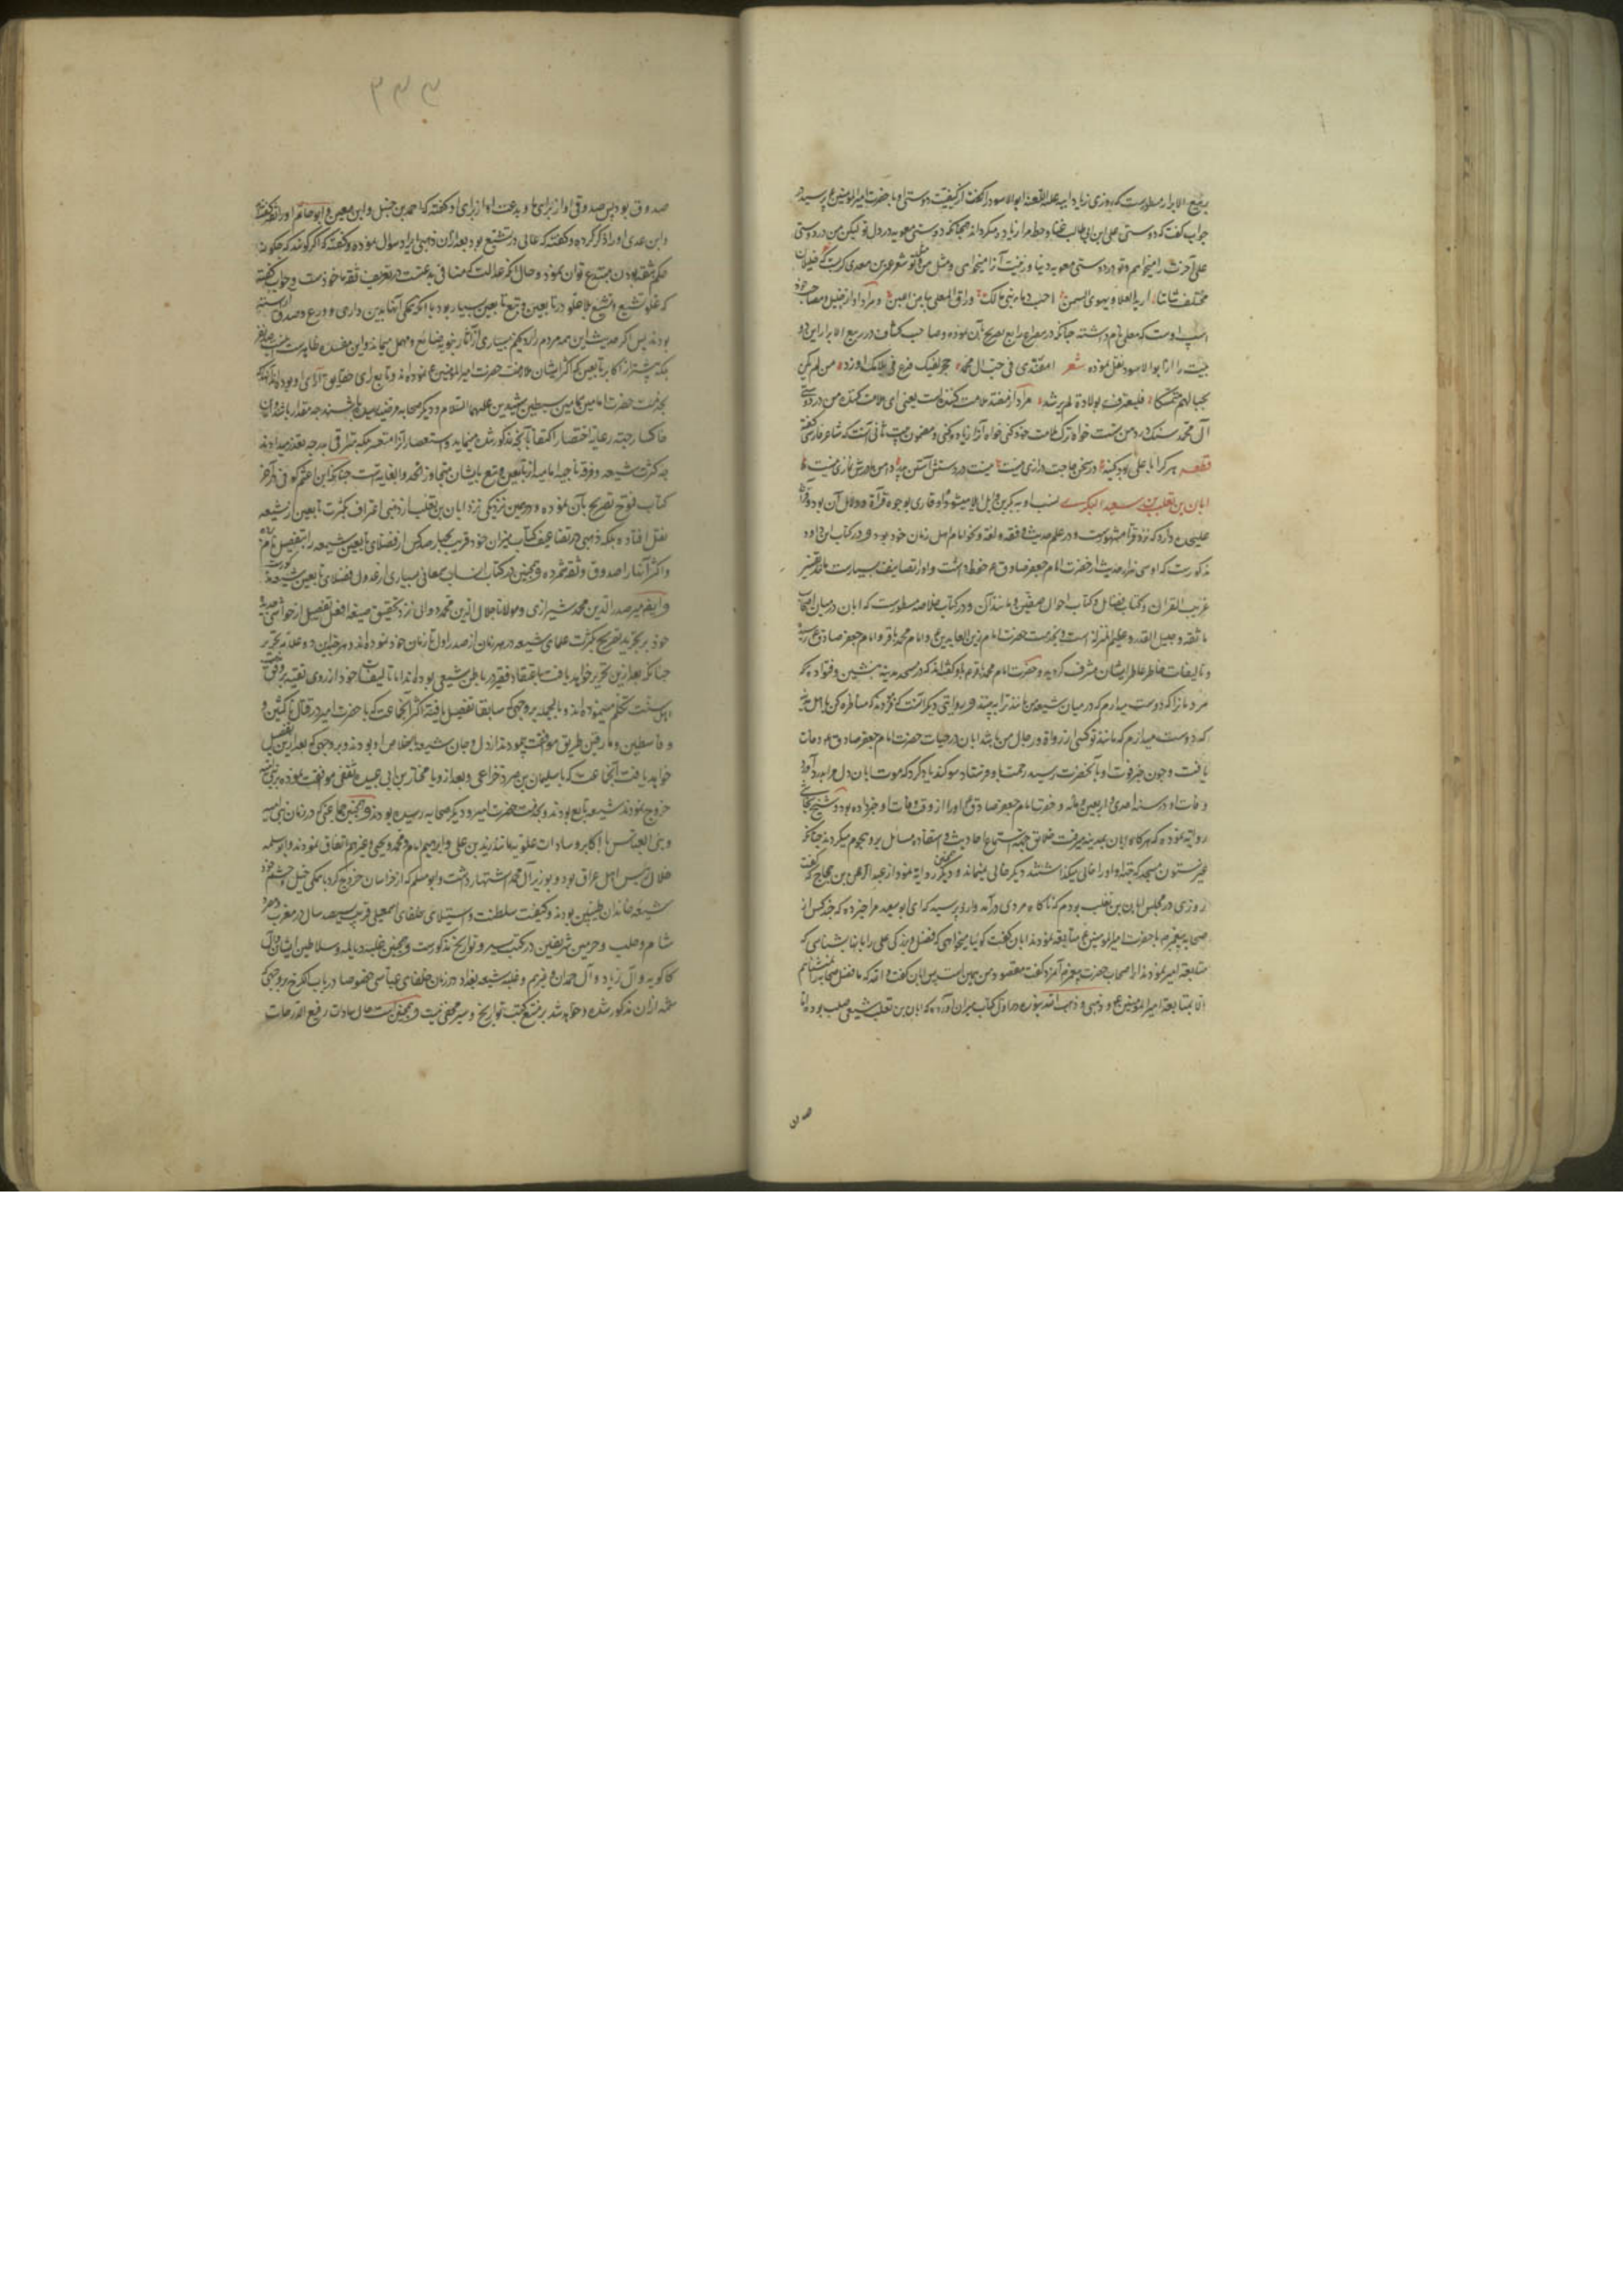 ربیع الابرار مسطورست که روزی زیاد ابیه علیه اللعنة ابوالاسود را گفت از کیفیت دوستی او با حضرت امیرالمؤمنین ع پرسید در
جواب گفت که دوستی علی ابن ابی طالب همچنانکه دوستی معویه در دل تو لیکن من در دوستی
علی آخرت را میخواهم و تو در دوستی معویه دنیا و زینت آنرا میخواهی و مثل من و تو شعر عمرو بن معدی کربست خلیلان
مختلف شاننا ارید العلا و یهوی السمن احب دماء بنی مالک وراق المعلی بیاض اللبن و مراد او از
اسپ اوست که معلی نام داشته چنانکه در مصراع رابع تصریح بآن نموده و صاحب کشاف در ربیع الابرار این دو
بیت را از ابوالاسود نقل نموده شعر امفندی فی حب آل محمد حجر بفیک فدع ملامک او زد من لم یکن
بحبالهم متمسکا فلیعترف بولادة لم ترشد مراد از مفند ملامت کننده است یعنی ای ملامت کننده من در دوستی
آل محمد سنک در دهن تست خواه ترک ملامت خود کنی خواه آنرا زیاده کنی و مضمون بیت ثانی آنست که شاعر فارسی گفته
قطعه هر کرا با علی بود کینه در سخن حاجت درازی نیست نیست در دستش آستین پدر دامن مادرش نمازی نیست
ابان بن تغلب بن سعید البکری نسب او به بکر بن وایل میشود و او قاری بوجوه قرآة و دلایل آن بود و قرآة
علیحده دارد که نزد قرآ مشهورست و در علم حدیث و فقه و لغة و نحو امام اهل زمان خود بود و در کتاب ابن داود
مذکورست که او سی هزار حدیث از حضرت امام جعفر صادق ع حفظ داشت و او را تصانیف بسیارست مانند تفسیر
غریب القران و کتاب فضایل و کتاب احوال صفین و مانند آن و در کتاب خلاصه مسطورست که ابان در میان اصحاب
ما ثقه و جلیل القدر و عظیم المنزله است و بخدمت حضرت امام زین العابدین ع و امام محمد باقر و امام جعفر صادق ع رسیده
و حضرت امام محمد باقر ع باو گفته اند که در مسجد مدینه بنشین و فتوا ده که
مردمانرا که دوست میدارم که در میان شیعه من مانند ترا ببینند و بروایتی دیگر آنست که فرمودند که مناظره کن با اهل مدینه
که دوست میدارم که مانند تو کسی از رواة و رجال من باشد ابان در حیات حضرت امام جعفر صادق ع وفات
یافت و چون خبر فوت او بآنحضرت رسید رحمت باو فرستاد و سوکند یاد کرد که موت ابان دل مرا بدرد آورد
وفات او در سنه احدی و اربعین و مائه و حضرت امام جعفر صادق ع او را از وقت وفات او خبر داده بود و شیخ نجاشی
روایة نموده که هرگاه ابان بمدینه میرفت خلایق جهة استماع احادیث و استفاده مسائل برو هجوم میکردند چنانکه
غیر ستون مسجد که جهة او خالی میکذاشتند دیگر خالی نمیماند و همچنین روایة نمود از عبدالرحمن بن حجاج که گفت
روزی در مجلس ابان بن تغلب بودم که ناگاه مردی درآمد و ازو پرسید که ای ابو سعید مرا خبر ده که چند کس از
صحابه پیغمبر ص با حضرت امیرالمؤمنین ع متابعة نمودند ابان گفت گویا میخواهی که فضل و بزرگی علی را بآنها بشناسی که
متابعة امیر نمودند از اصحاب حضرت پیغمبر آن مرد گفت مقصود من همین است پس ابان گفت و الله که ما فضل صحابه را نمیشناسیم
الا بمتابعة امیرالمؤمنین ع و ذهبی در اول کتاب میزان آورده که ابان بن تغلب شیعی صلب بوده اما
صدوق
۳۳۳
صدوق بود پس صدوقی او از برای ما و بدعت او از برای او و گفته که احمد بن حنبل و ابن معین و ابو حاتم او را ثقه گفته اند
و ابن عدی او را ذکر کرده و گفته که غالی در تشیع بود بعد از آن ذهبی ایراد سوال نموده و گفته که اگر گویند که چگونه
حکم بثقه بودن مبتدع توان نمود و حال آنکه عدالت که منافی بدعتست در تعریف ثقه ماخوذست و جواب گفته
که غلو تشیع و تشیع بلا غلو در تابعین و تبع تابعین بسیار بود با آنکه همگی آنها بدین داری و ورع و صدق آراسته
بودند پس اگر حدیث این همه مردم را رد کنیم بسیاری از آثار نبویه ضایع و مهمل میماند و این مفسده ظاهرست
بلکه بیشتر از اکابر تابعین که اکثر ایشان ملازمت حضرت امیرالمؤمنین ع نموده اند و تابع رای حقایق آرای او بوده اند
بخدمت حضرت امامین سبطین شهیدین علیهما السلام و دیگر صحابه مرضیه
خاکسار جهة رعایة اختصار اکتفا بآنچه مذکور شد مینماید و استحصار آنرا متعسر بلکه متعذر میداند
چه کثرت شیعه و فرقه ناجیه امامیه از تابعین و تبع ایشان متجاوز الحد و الغایه است چنانکه ابن اعثم کوفی در آخر
کتاب فتوح تصریح بآن نموده و در همین نزدیکی نزد ابان بن تغلب از ذهبی اعتراف بکثرت تابعین از شیعه
نقل افتاده بلکه ذهبی در تضاعیف کتاب میزان خود قریب بچهار صد کس از فضلای تابعین شیعه را بتفصیل نام برده
و اکثر آنها را صدوق و ثقه شمرده و همچنین در کتاب انساب سمعانی بسیاری از عدول فضلای تابعین شیعه مذکورست
و ایضا میر صدر الدین محمد شیرازی و مولانا جلال الدین محمد دوانی نزد تحقیق صیغه افعل تفضیل از حواشی جدیده
خود بر تجرید تصریح بکثرت علمای شیعه در هر زمان از صدر اول تا زمان خود نموده اند و هر چند این دو علامه نحریر
چنانکه بعد ازین تحریر خواهد یافت باعتقاد فقیر در باطن شیعی بوده اند اما در تالیفات خود از روی تقیه بر وفق مذهب
اهل سنت تکلم مینموده اند و بالجمله بر وجهی که سابقا تفصیل یافته اکثر آنجماعت که با حضرت امیر در قتال ناکثین و
و قاسطین و مارقین طریق موافقت پیمودند از دل و جان شیعه باخلاص او بودند و بر وجهی که بعد ازین تفصیل
خواهد یافت آنجماعت که با سلیمان بن صرد خزاعی و بعد ازو با مختار بن ابی عبیده ثقفی موافقت نموده بر بنی امیه
خروج نمودند شیعه تابع بودند و بخدمت حضرت امیر و دیگر صحابه رسیده بودند و همچنین جماعتی که در زمان بنی امیه
و بنی العباس با اکابر و سادات علویه مانند زید بن علی و ابراهیم امام و محمد و یحیی و غیرهم اتفاق نمودند و ابو سلمه
خلال رئیس اهل عراق بود و بوزیر آل محمد اشتهار داشت و ابو مسلم که از خراسان خروج کرد با همگی خیل و حشم خود
شیعه خاندان طیبین بودند و کیفیت سلطنت و استیلای خلفای اسمعیلی قریب سیصد سال در مغرب و مصر
شام و حلب و حرمین شریفین در کتب سیر و تواریخ مذکورست و همچنین غلبه دیالمه و سلاطین ایشان و آل
کاکویه و آل زیاد و آل حمدان و غیرهم و غلبه شیعه بغداد در زمان خلفای عباسی خصوصا در باب الکرخ بر وجهی که
شمه از آن مذکور شده و خواهد شد بر متتبع کتب تواریخ و سیر مخفی نیست و همچنین است حال سادات رفیع الدرجات